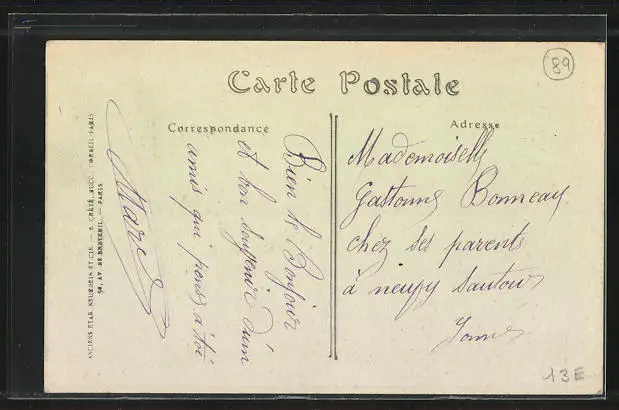 Carte Postale
89
Correspondance
Adresse
Bien le Bonjour
et bon souvenir d'un
amis qui pense à toi
Marcel
Mademoiselle
Gastonne Bonneau
chez ses parents
à neuvy Sautour
Yonne
ANCIENS ETAB. NEURDEIN ET CIE. — E. CRÉTÉ, SUCC. CORBEIL-PARIS
52, AV. DE BRETEUIL. — PARIS.
13E